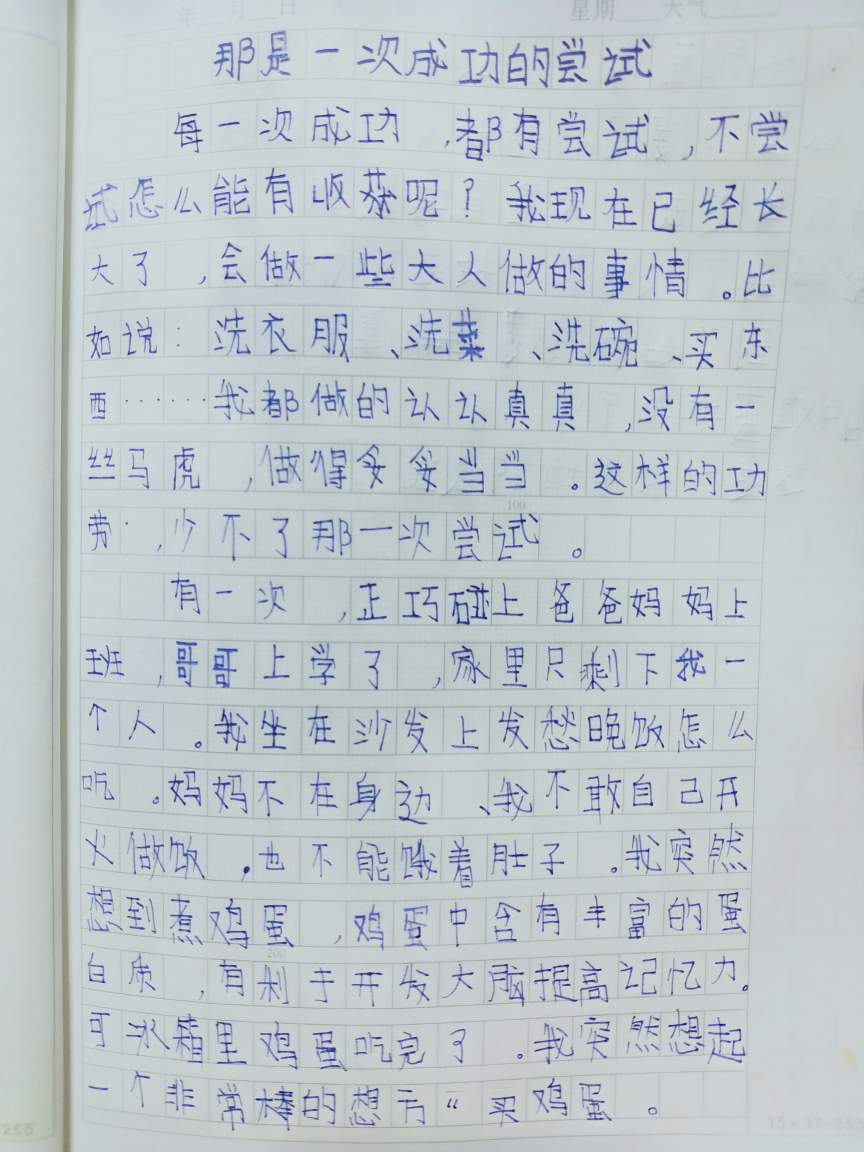 年 月 日 星期 天气
那是一次成功的尝试
每一次成功,都有尝试,不尝
试怎么能有收获呢?我现在已经长
大了,会做一些大人做的事情。比
如说:洗衣服、洗菜、洗碗、买东
西······我都做的认认真真,没有一
丝马虎,做得妥妥当当。这样的功
100
劳,少不了那一次尝试。
有一次,正巧碰上爸爸妈妈上
班,哥哥上学了,家里只剩下我一
个人。我坐在沙发上发愁晚饭怎么
吃。妈妈不在身边、我不敢自己开
火做饭,也不能饿着肚子。我突然
想到煮鸡蛋,鸡蛋中含有丰富的蛋
200
白质,有利于开发大脑提高记忆力。
可冰箱里鸡蛋吃完了。我突然想起
一个非常棒的想方“买鸡蛋。
255
15×17=255